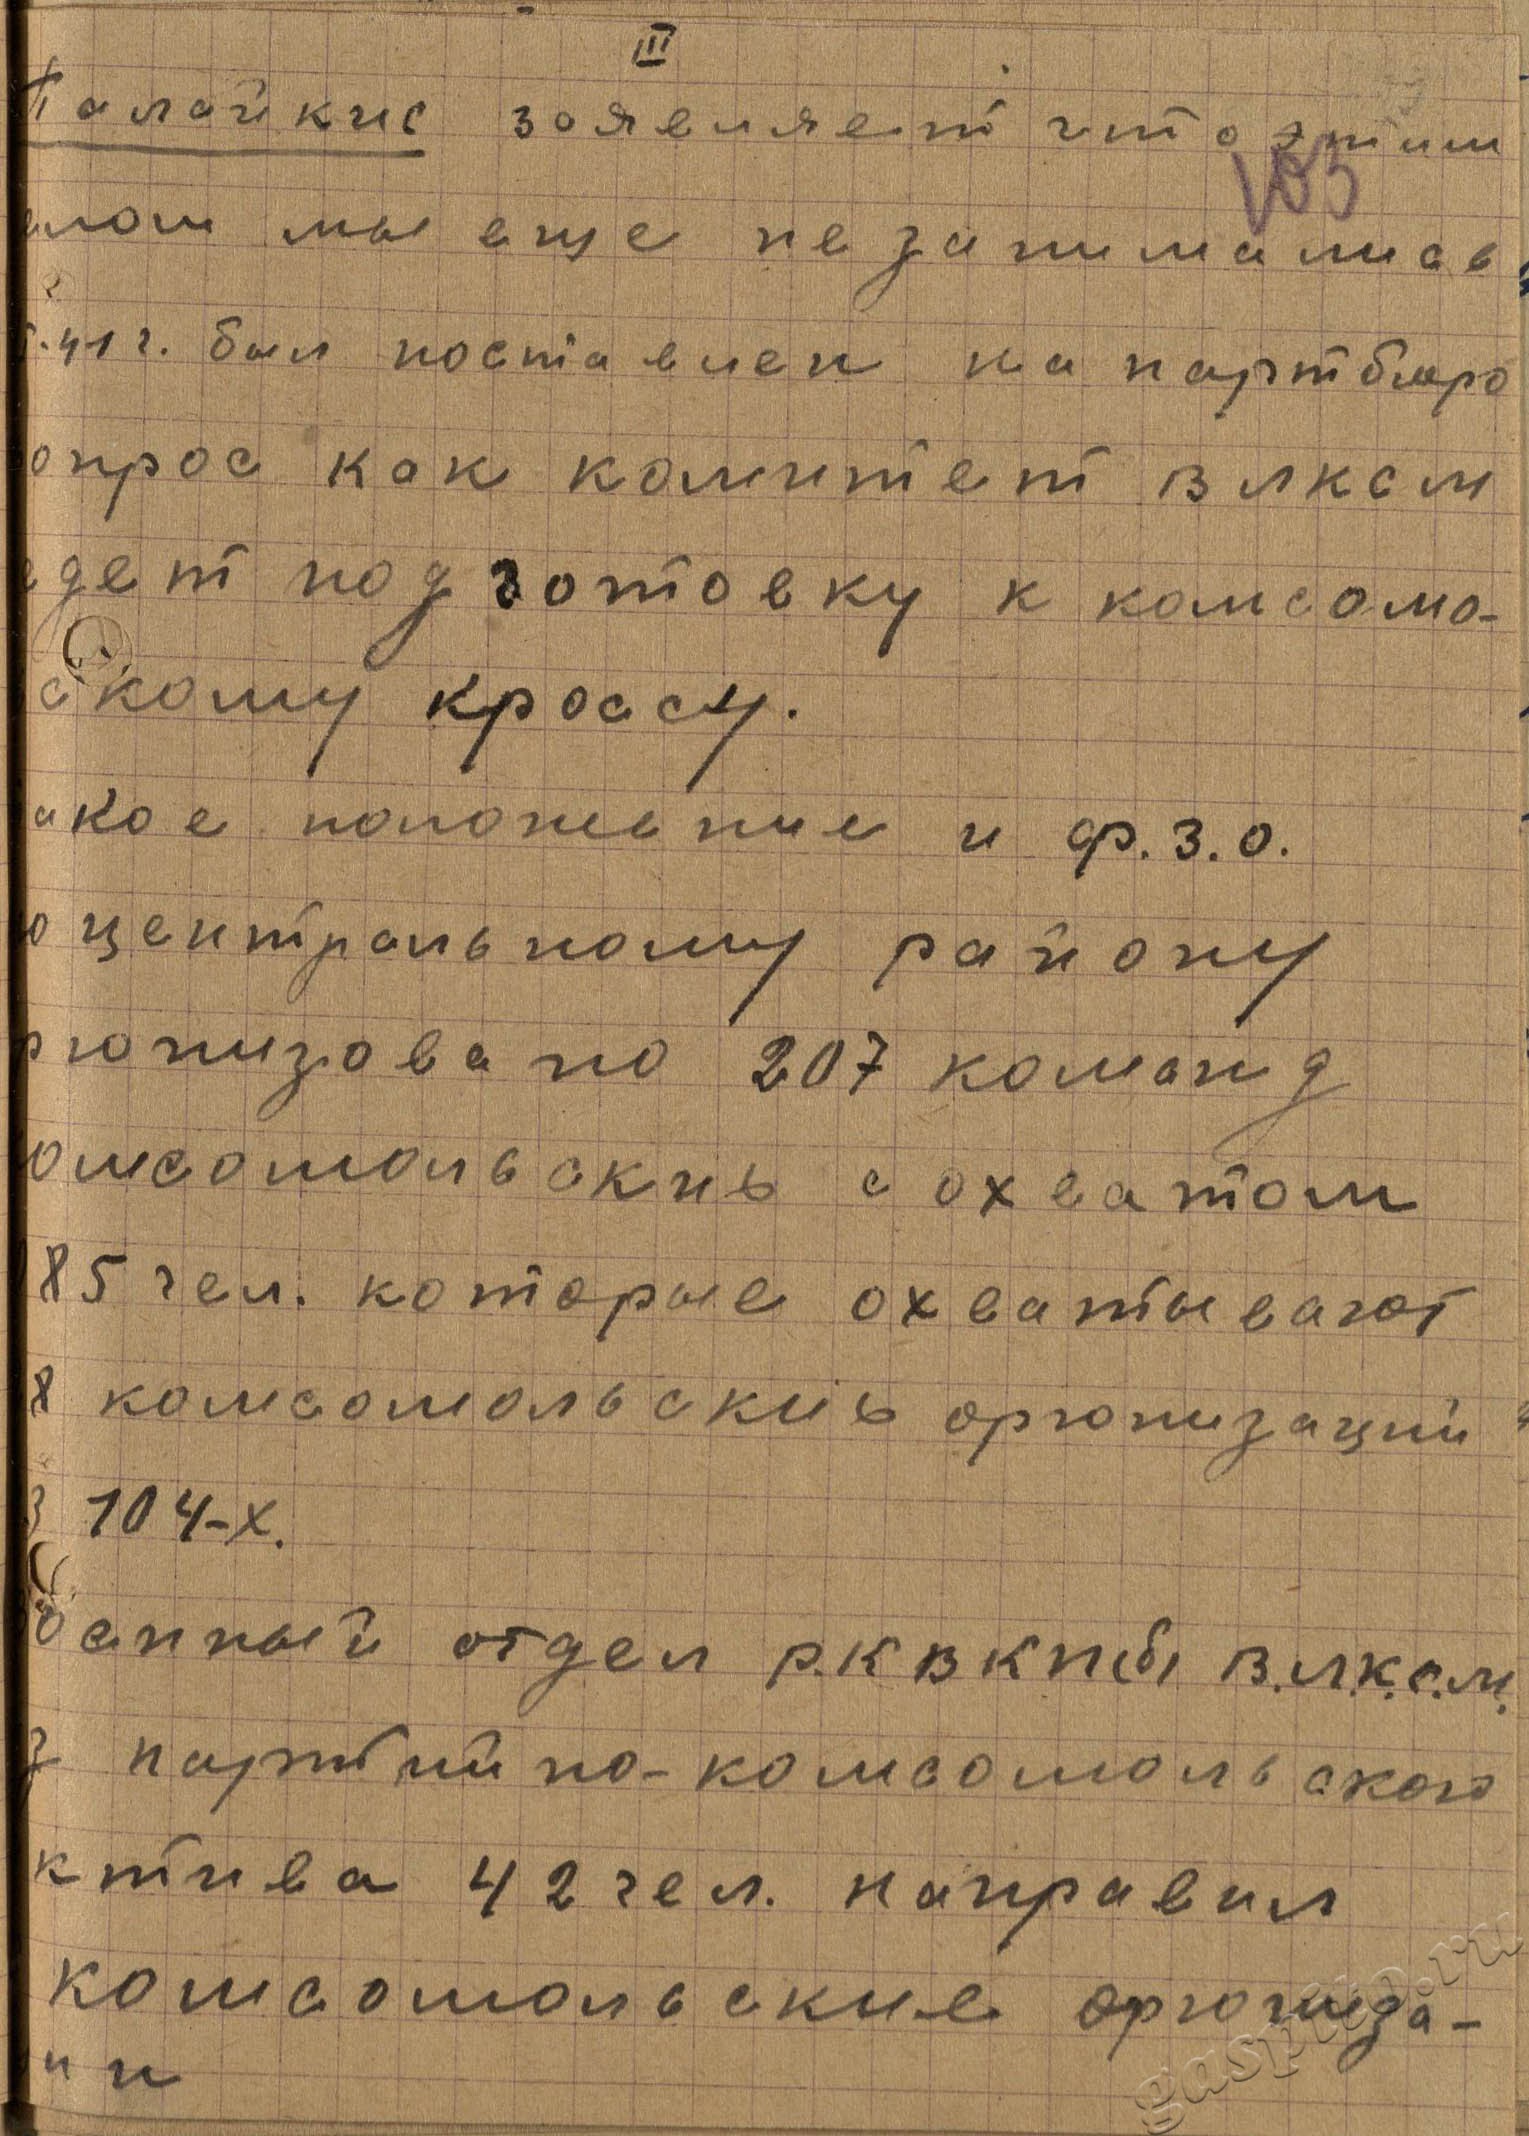 III
Палайкис заявляет что этим
103
елом мы еще не занимались
.41 г. был поставлен на партбюро
опрос как комитет влксм
едет подготовку к комсомо-
скому кроссу.
акое положение и ф.з.о.
о центральному району
рганизовано 207 команд
омсомольских с охватом
85 чел. которые охватывают
8 комсомольских организаций
з 104-х.
оенный отдел р.к вкпб в.л.к.с.м.
з партийно-комсомольского
ктива 42 чел. направил
комсомольские организа-
ии
gaspito.ru